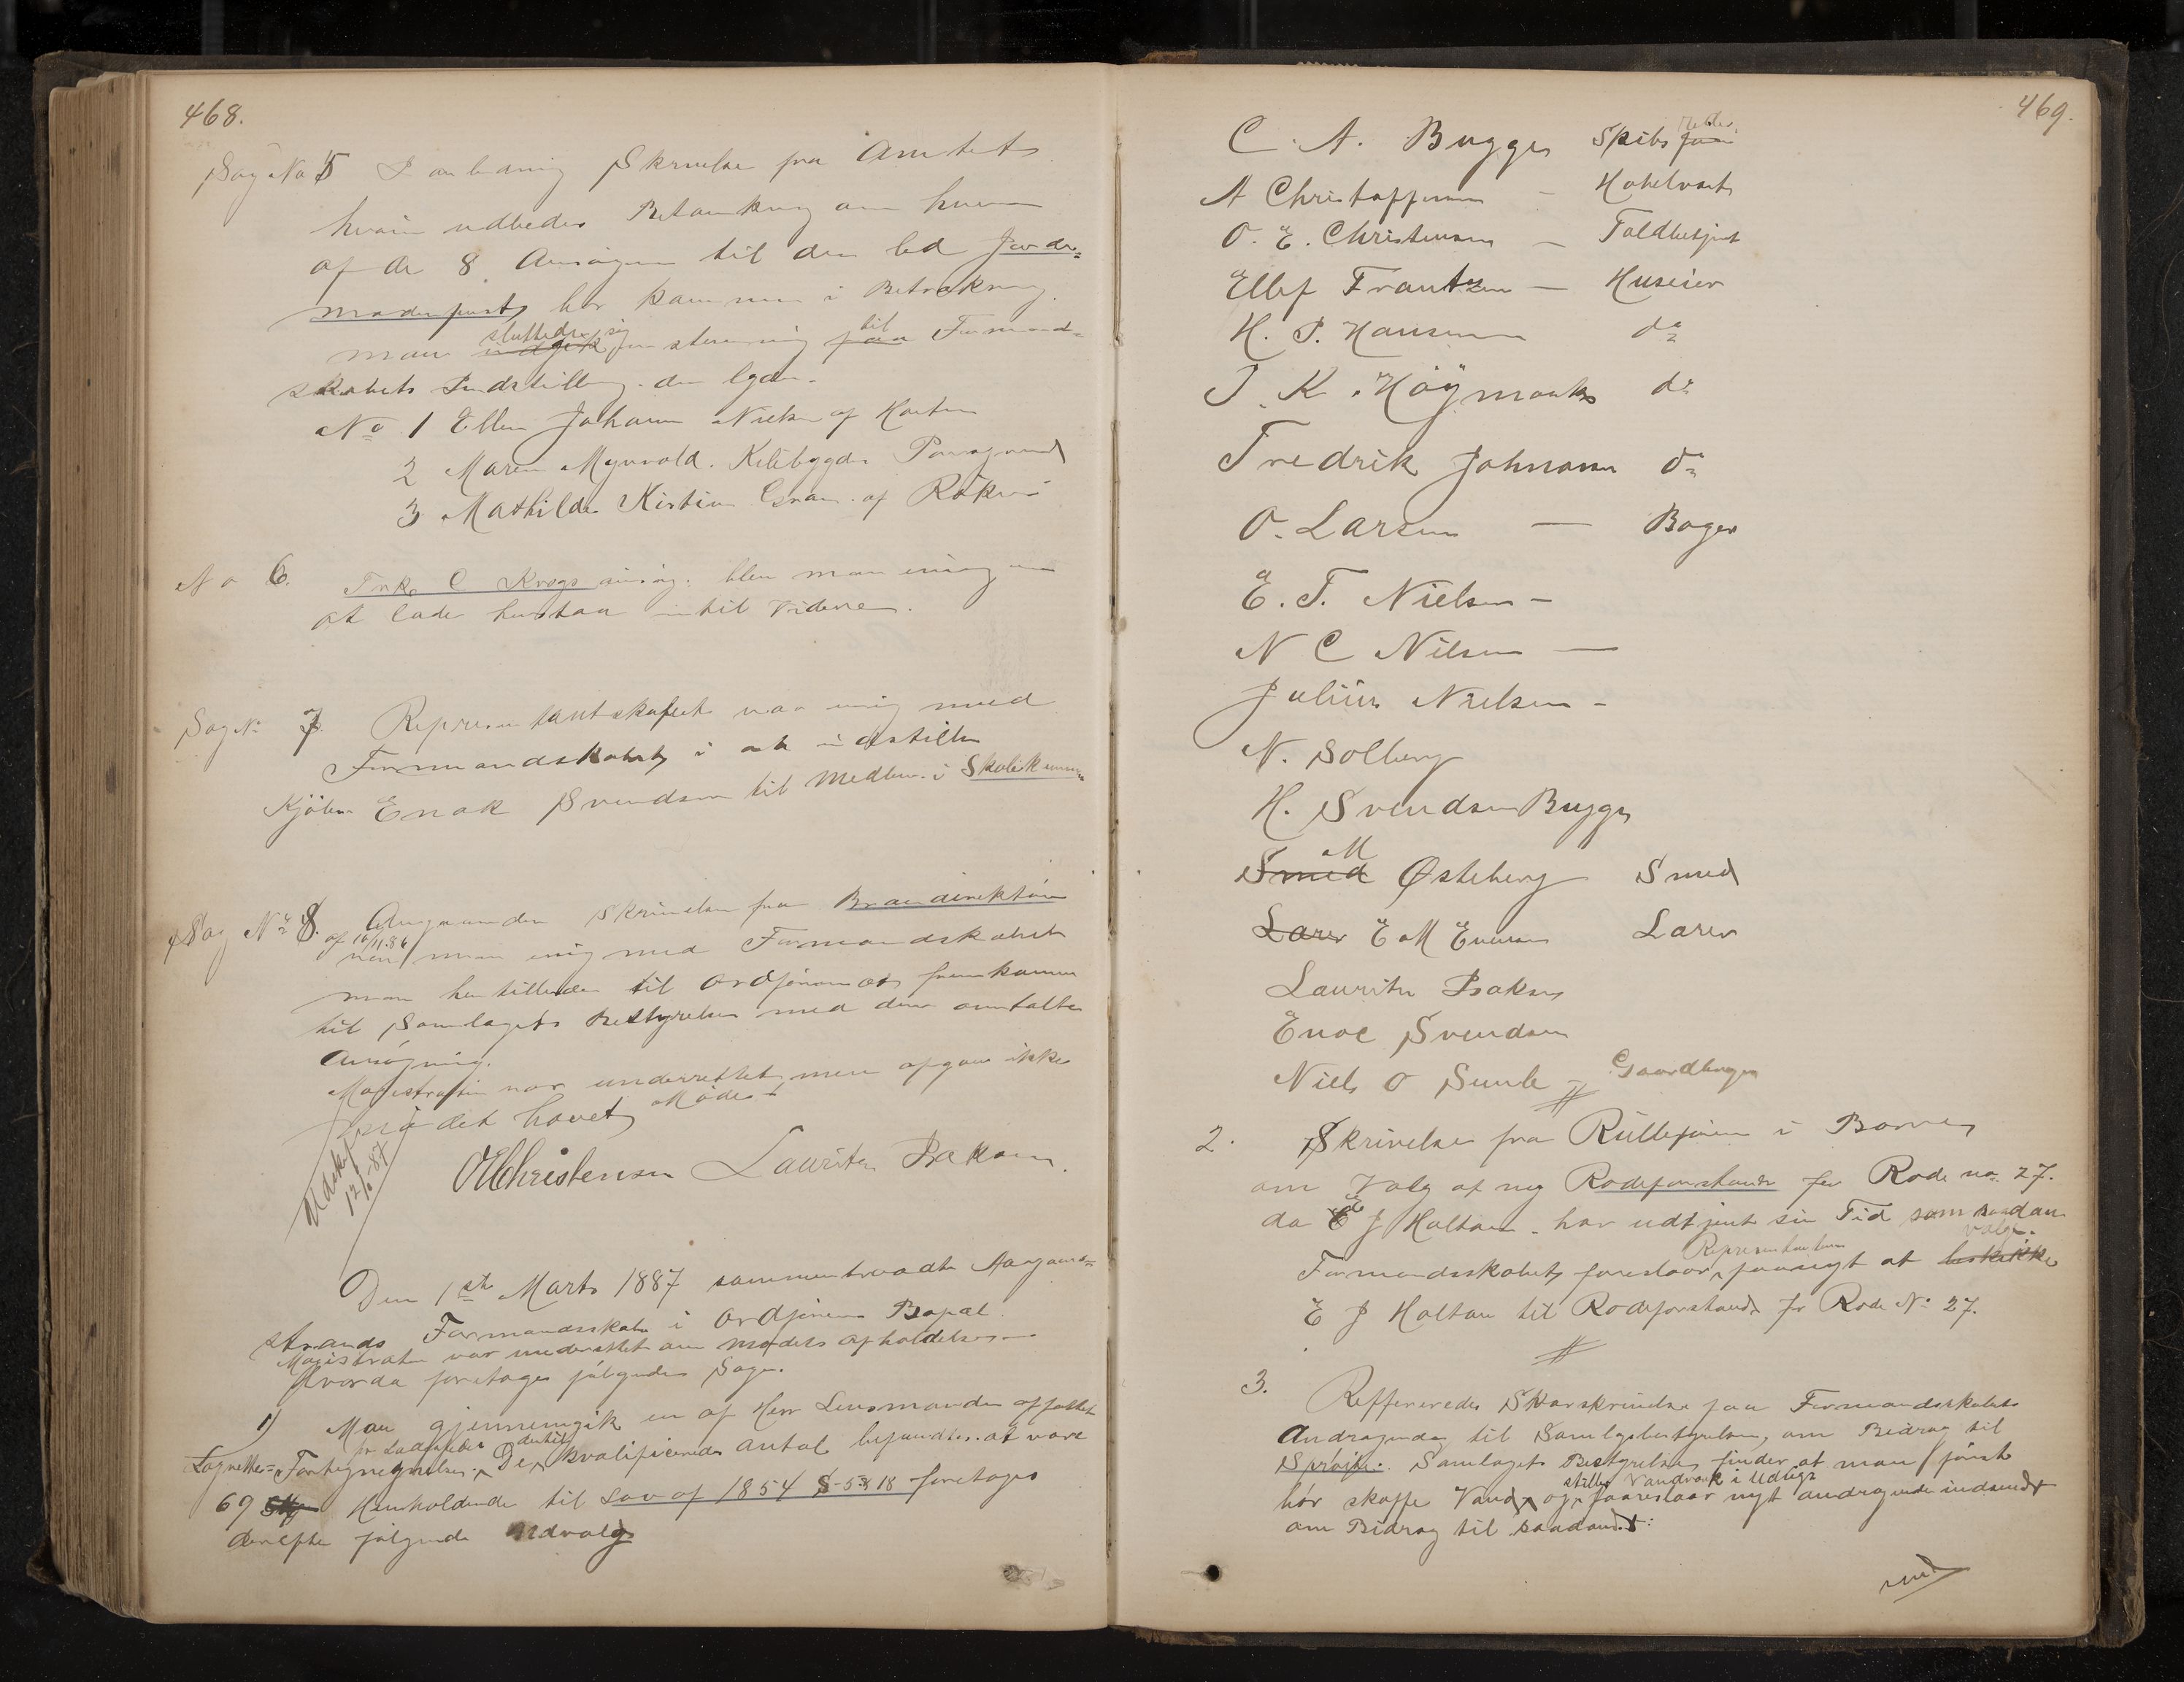 468.
Sag No 5 I anledning Skrivelse fra Amtet
hvori udbedes Betænkning om hvem
af de 8 Ansøgere til den led Jorde=
moderpost, bør komme i Betrækning
man sluttede sig til Formand=
skabets Indstilling.
No 1 Ellen Johanne Nielsen af Horten
2 Maren Myrvold. Kilebygden Porsgrund
3 Mathilde Kistine af Røken
No 6. C Krogs ansøg. blev man enig om
at lade henstaa indtil Videre.
Sag No 7 Repræsentantskabet var enig med
Formandskabet i at indstille
Enok Svendsen til Medlem i Skolekommis
Sag No 8. Angaaende Skrivelse fra Brandirektøren
af 16/11.86 var man enig med Formandskabet
man henstillede til Ordføreren at fremkomme
til Samlagets Bestyrelse med den omtalte
Ansøgning.
Magistraten var underrettet men afgav ikke
Møde
Udskr 12/1-87
OEChristensen Lauritz Isaksen.
Den 1ste Marts 1887 sammentraadte Aasgaard=
strands Formandsskab i Ordførerens Bopæl
Magistraten var underrettet om mødets Afholdelse
Hvorda foretages følgende Sager.
1) Man gjennemgik en af Herr Lensmanden affattet
Lagrettes= Fortegnelse. De dertil kvalificerede antal befandtes at være
69 Henholdende til Lov af 1854 § 18 foretages
derefter følgende Udvalg
469.
C. A. Bugge Skibsreder
A Christoffersen - Hotelvært
O. E. Christensen - Toldbetjent
Ellef Frantzen - Huseier
H. P. Hansen do
I. K. Høymark do
Fredrik Johnasen do
O. Larsen - Bager
E. T. Nielsen -
N C Nilsen -
Julius Nielsen -
N. Solberg
H. Svendsen Bugge
Smed M Østeberg Smed
Larer E M Evensen Larer
Lauritz Isaksen
Enoc Svendsen
Niels O Sunle - Gaardbruger
2. Skrivelse fra Rulleføreren i Borre,
om Valg af ny Rodeforstander for Rode no 27.
da E J Holtan har udtjent sin Tid som saadan
Formandsskabet foreslaar Repræsentanterne paanyt at beskikke vælge
E J Holtan til Rodeforstander for Rode No 27.
3. Reffereredes Svarskrivelse paa Formandsskabets
Andragende til Samlagsbestyrelsen, om Bidrag til
Sprøite. Samlagets Bestyrelse finder at man først
bør skaffe Vand, og stiller Vandværk i Udsigt foreslaar nyt andragende indsendt
om Bidrag til saadant: